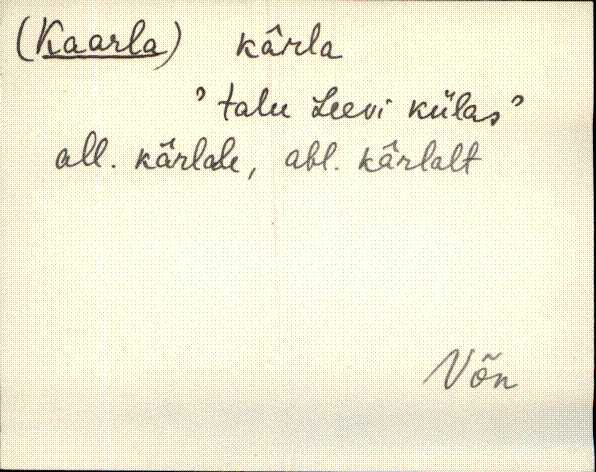 (Kaarla) kârla
’talu Leevi külas’
all. kârlale, abl. kârlalt
Võn